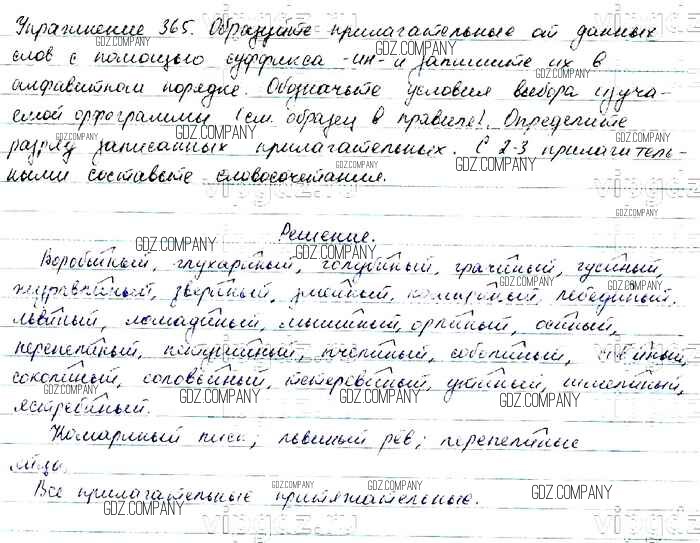 Упражнение 365. Образуйте прилагательные от данных
слов с помощью суффикса -ин- и запишите их в
алфавитном порядке. Обозначьте условия выбора изуча-
емой орфограммы (см. образец в правиле). Определите
разряд записанных прилагательных. С 2-3 прилагатель-
ными составьте словосочетания.
Решение.
Воробьиный, глухариный, голубиный, грачиный, гусиный,
журавлиный, звериный, змеиный, комариный, лебединый,
львиный, лошадиный, мышиный, орлиный, осиный,
перепелиный, петушиный, пчелиный, соболиный, совиный,
соколиный, соловьиный, тетеревиный, утиный, шмелиный,
ястребиный.
Комариный писк; львиный рёв; перепелиные
яйца.
Все прилагательные притяжательные.
GDZ.COMPANY
vipgdz.ru